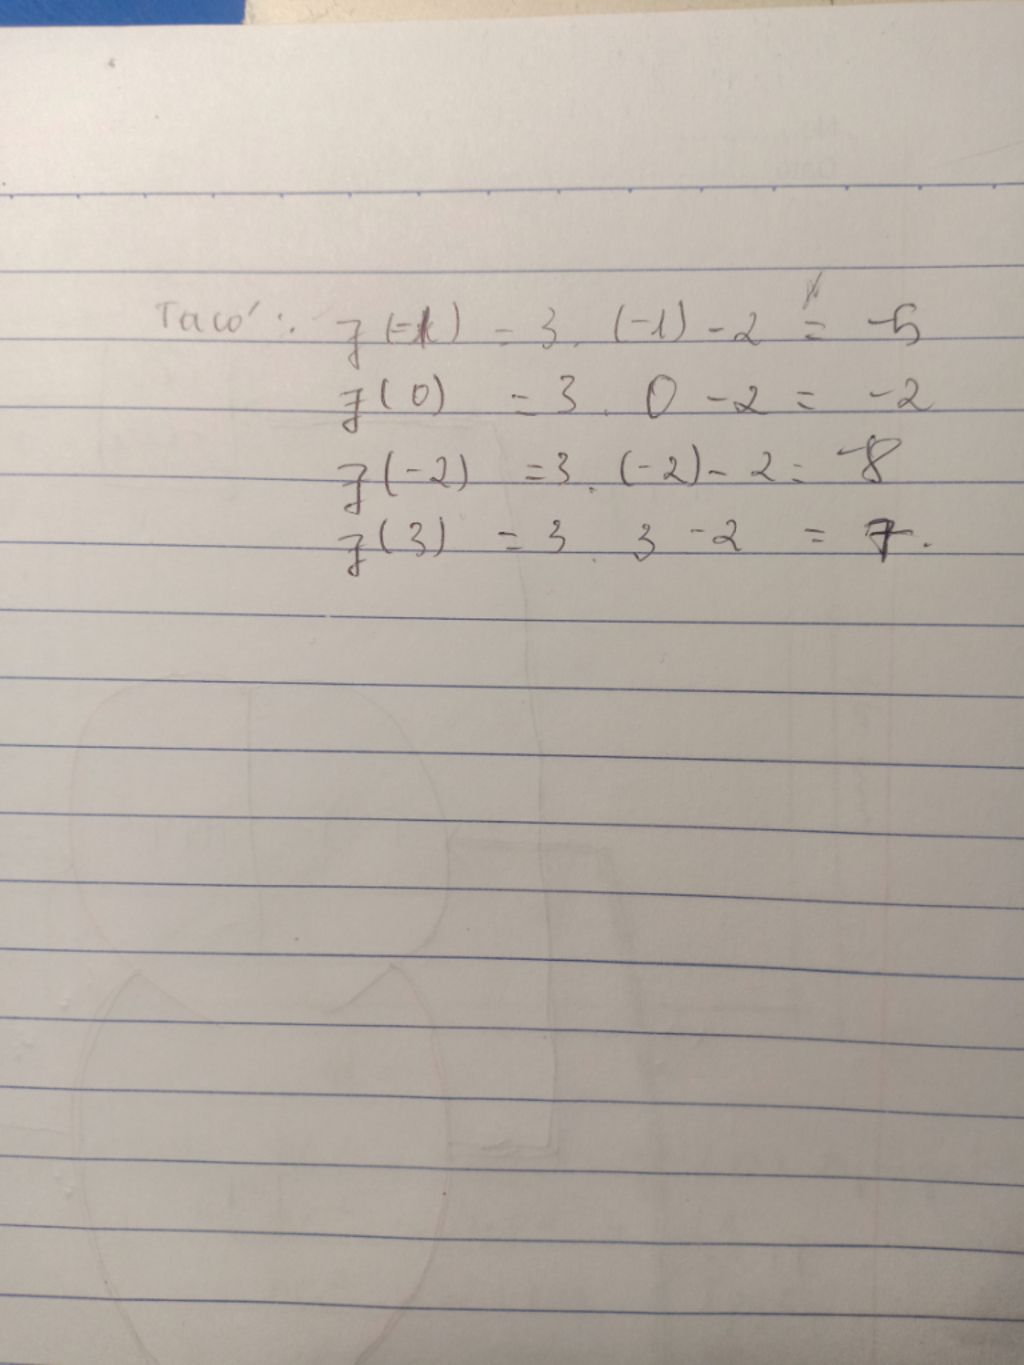 Ta có: f(-1) = 3. (-1) - 2 = -5
f(0) = 3. 0 - 2 = -2
f(-2) = 3. (-2) - 2 = -8
f(3) = 3. 3 - 2 = 7.